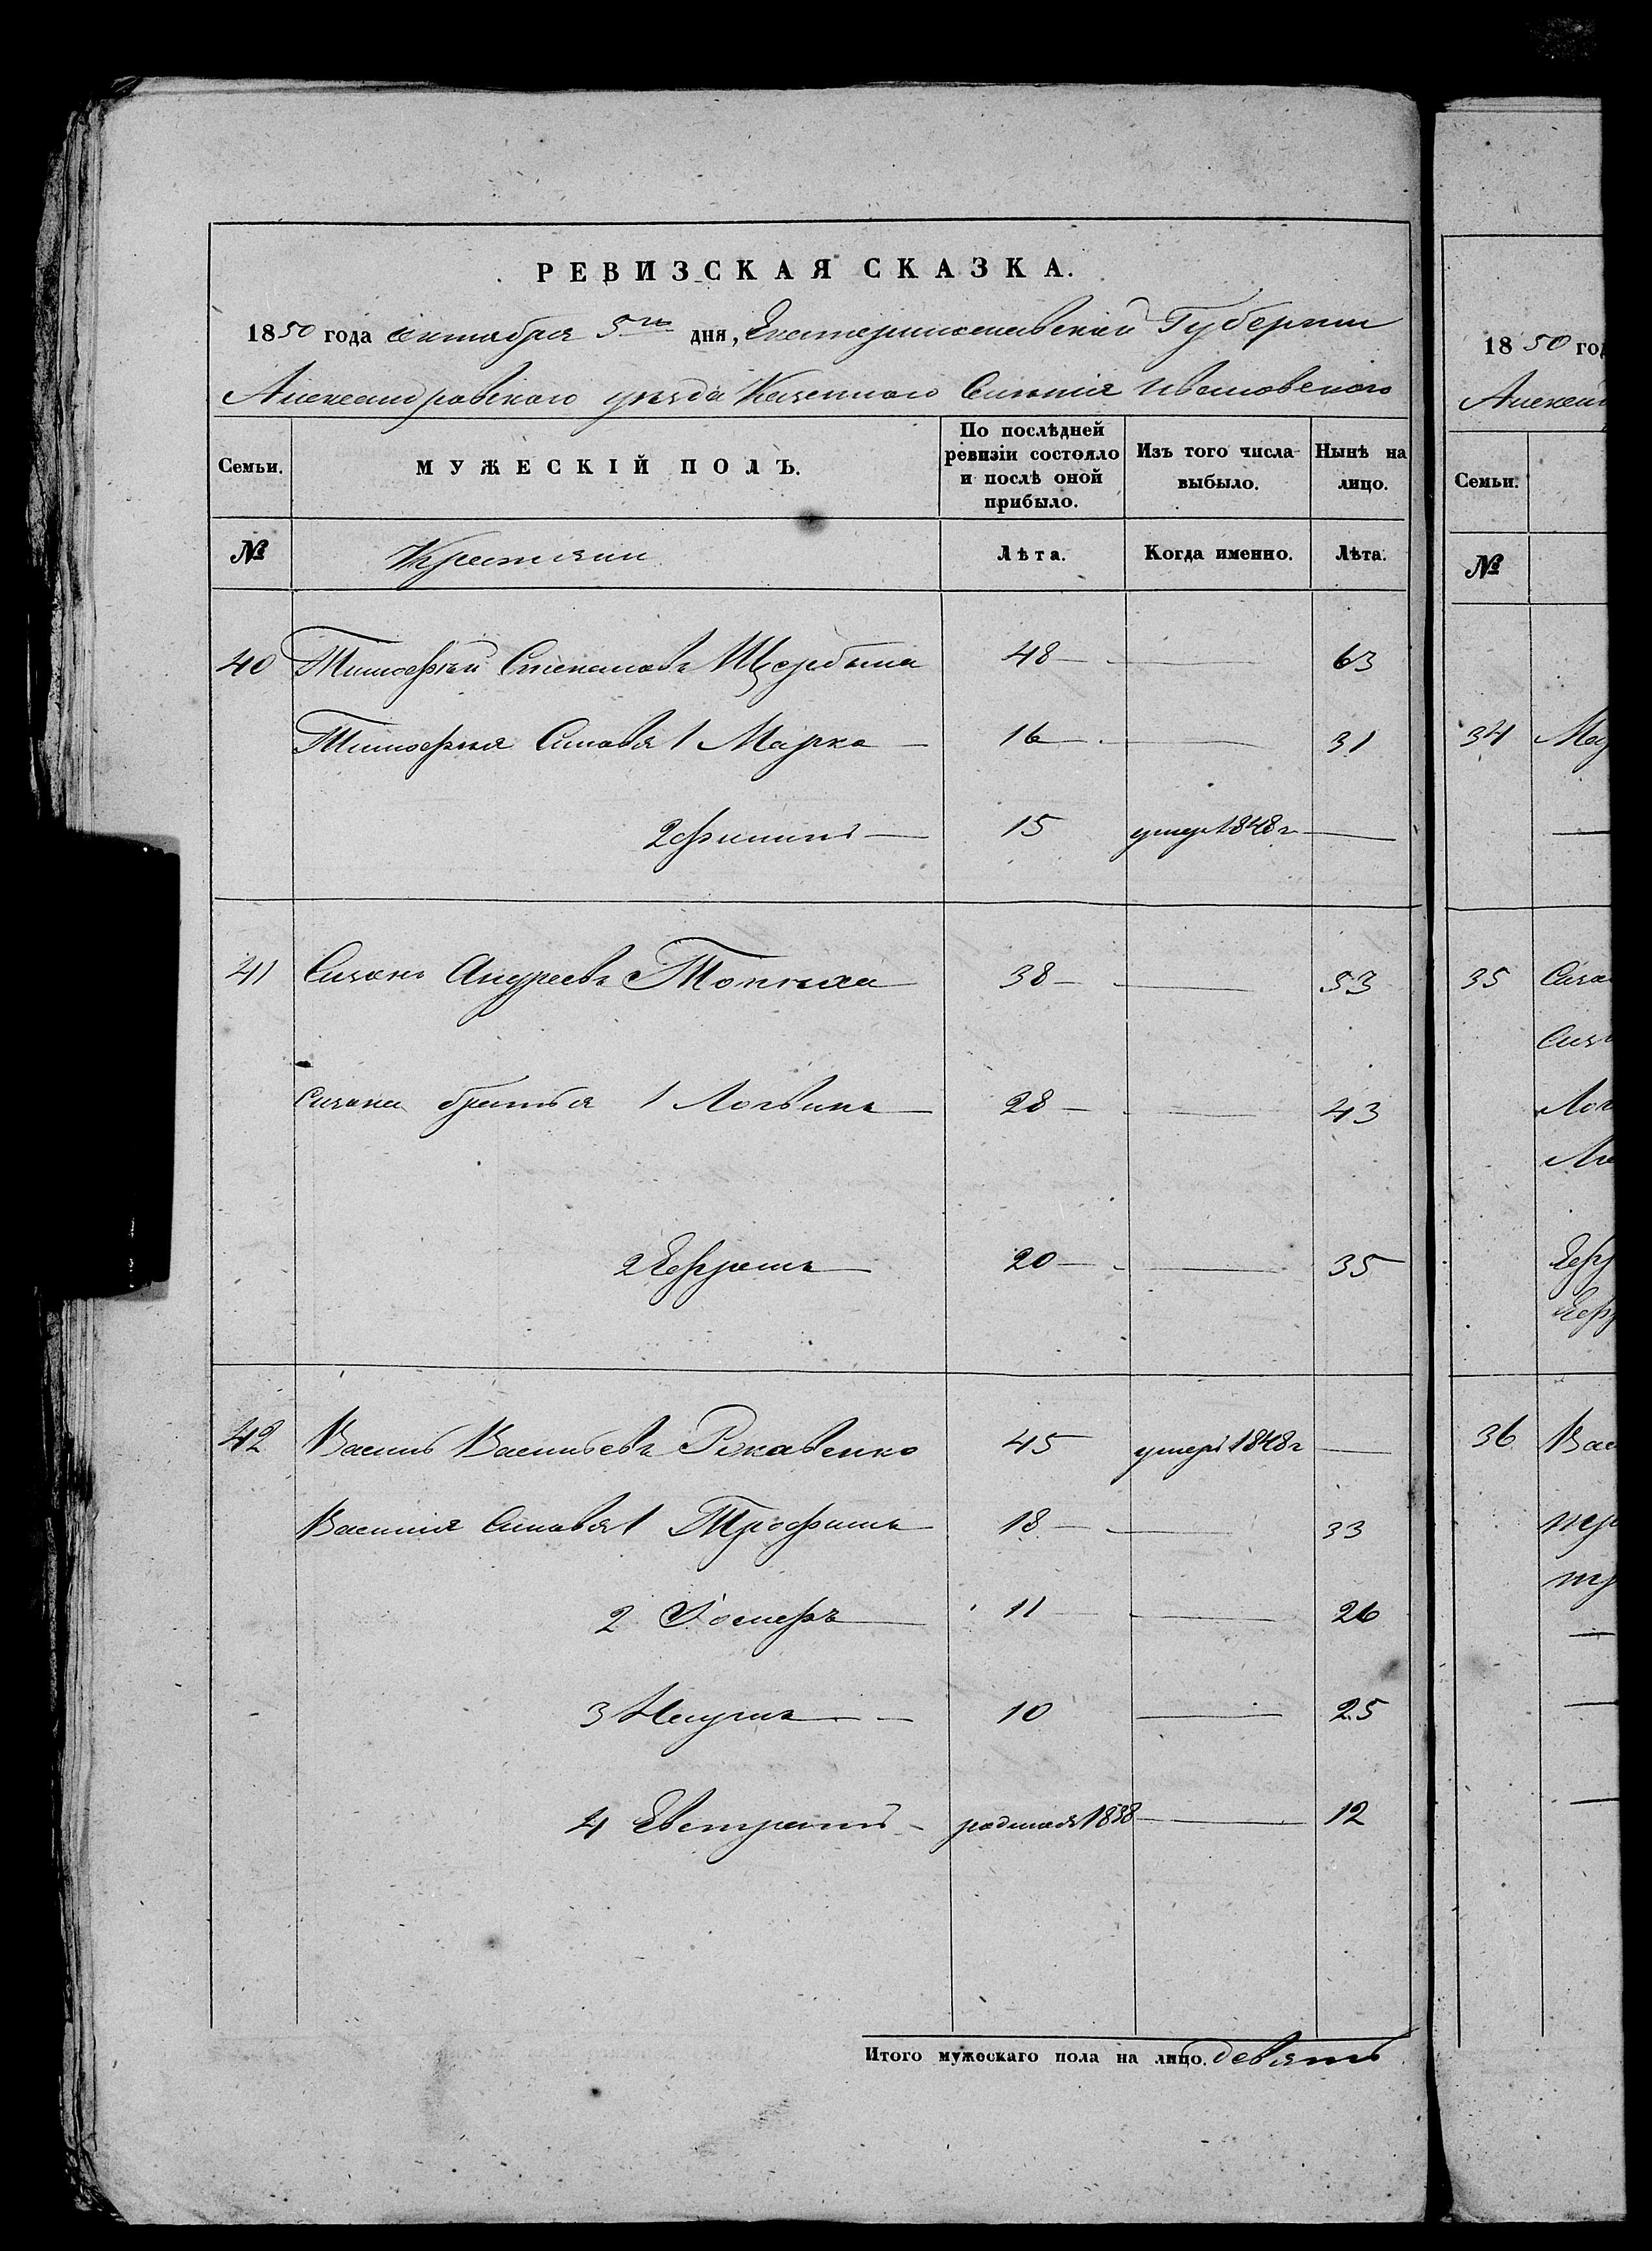 РЕВИЗСКАЯ СКАЗКА.
1850 года октября 5го дня, Екатеринославской Губернии
Александровского уезда Казенного Селения Ивановского
Семьи. МУЖЕСКІЙ ПОЛЪ. По послѣдней ревизіи состояло и послѣ оной прибыло. Изъ того числа выбыло. Нынѣ на лицо.
№ Крестьяни Лѣта. Когда именно. Лѣта.
40 Тимофей Степановъ Щербина 48 — — 63
Тимофея Сыновя 1 Марко — 16 — — 31
2 Филипъ — 15 умер 1848 г —
41 Сизонъ Андреевъ 38 — — 53
Сизона братья 1 Логвинъ — 28 — — 43
2 Ефремъ — 20 — — 35
42 Василь Васильевъ Рекавенко 45 умеръ 1848 г —
Василия Сыновья 1 Трофимъ — 18 — — 33
2 Иосифъ — 11 — — 26
3 Наумъ — — 10 — 25
4 Евстратъ — родился 1838 — 12
Итого мужескаго пола на лицо. девять
1850 год
Семьи.
№
34
35
36